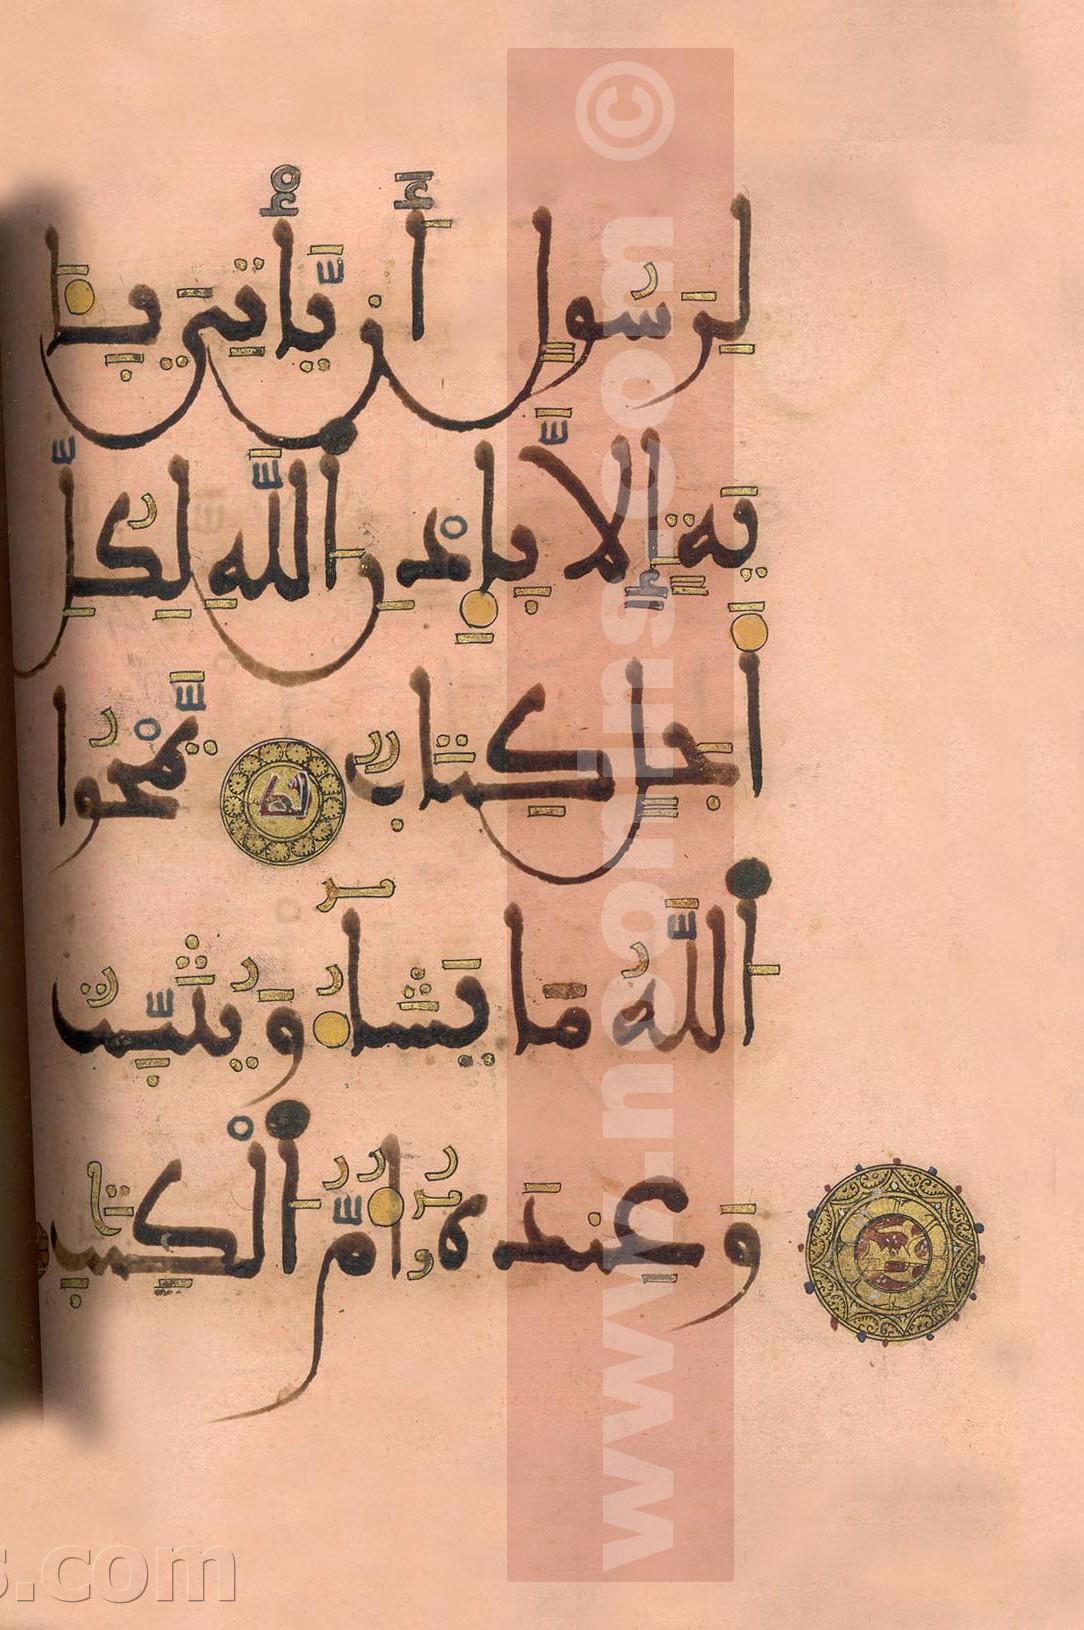 لِرَسُولٍ أَنْ يَّأْتِيَ بِـَٔا
يَةٍ إِلَّا بِإِذْنِ اللَّهِ لِكُلِّ
أَجَلٍ كِتَابٌ يَمْحُوا
اللَّهُ مَا يَشَآءُ وَيُثَبِّتُ
وَعِندَهُ أُمُّ الْكِتَٰبِ
©
s.com